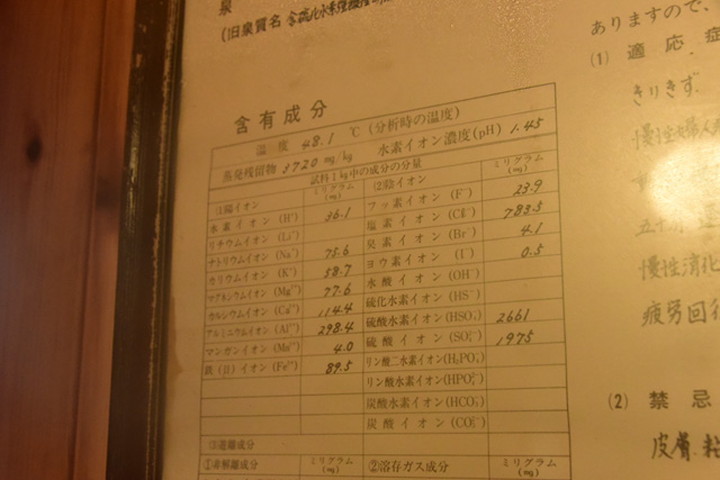 泉
(旧泉質名 含硫化水素強酸性
含有成分
温度 48.1 ℃ (分析時の温度)
蒸発残留物 5720 mg/kg 水素イオン濃度(pH) 1.45
試料1kg中の成分の分量
(1)陽イオン ミリグラム(mg) (2)陰イオン ミリグラム(mg)
水素イオン (H⁺) 36.1 フッ素イオン (F⁻) 23.9
リチウムイオン (Li⁺) 塩素イオン (Cl⁻) 783.5
ナトリウムイオン (Na⁺) 75.6 臭素イオン (Br⁻) 4.1
カリウムイオン (K⁺) 58.7 ヨウ素イオン (I⁻) 0.5
マグネシウムイオン (Mg²⁺) 77.6 水酸イオン (OH⁻)
カルシウムイオン (Ca²⁺) 114.4 硫化水素イオン (HS⁻)
アルミニウムイオン (Al³⁺) 298.4 硫酸水素イオン (HSO₄⁻) 2661
マンガンイオン (Mn²⁺) 4.0 硫酸イオン (SO₄²⁻) 1975
鉄(II)イオン (Fe²⁺) 89.5 リン酸二水素イオン (H₂PO₄⁻)
リン酸水素イオン (HPO₄²⁻)
炭酸水素イオン (HCO₃⁻)
炭酸イオン (CO₃²⁻)
(3)遊離成分
①非解離成分 ミリグラム(mg) ②溶存ガス成分 ミリグラム(mg)
ありますので、
(1) 適応症
きりきず、
慢性婦人
慢性消化
疲労回
(2) 禁忌
皮膚・粘